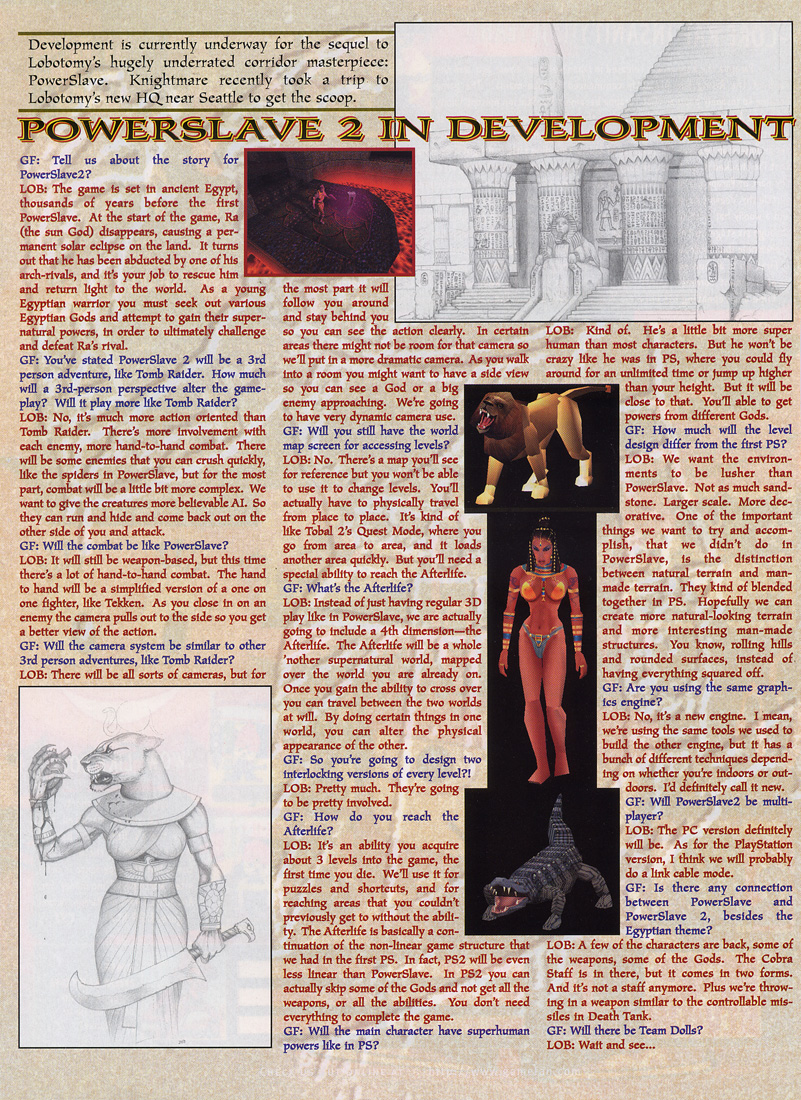 Development is currently underway for the sequel to
Lobotomy's hugely underrated corridor masterpiece:
PowerSlave. Knightmare recently took a trip to
Lobotomy's new HQ near Seattle to get the scoop.
POWERSLAVE 2 IN DEVELOPMENT
GF: Tell us about the story for
PowerSlave2?
LOB: The game is set in ancient Egypt,
thousands of years before the first
PowerSlave. At the start of the game, Ra
(the sun God) disappears, causing a per-
manent solar eclipse on the land. It turns
out that he has been abducted by one of his
arch-rivals, and it's your job to rescue him
and return light to the world. As a young
Egyptian warrior you must seek out various
Egyptian Gods and attempt to gain their super-
natural powers, in order to ultimately challenge
and defeat Ra's rival.
GF: You've stated PowerSlave 2 will be a 3rd
person adventure, like Tomb Raider. How much
will a 3rd-person perspective alter the game-
play? Will it play more like Tomb Raider?
LOB: No, it's much more action oriented than
Tomb Raider. There's more involvement with
each enemy, more hand-to-hand combat. There
will be some enemies that you can crush quickly,
like the spiders in PowerSlave, but for the most
part, combat will be a little bit more complex. We
want to give the creatures more believable AI. So
they can run and hide and come back out on the
other side of you and attack.
GF: Will the combat be like PowerSlave?
LOB: It will still be weapon-based, but this time
there's a lot of hand-to-hand combat. The hand
to hand will be a simplified version of a one on
one fighter, like Tekken. As you close in on an
enemy the camera pulls out to the side so you get
a better view of the action.
GF: Will the camera system be similar to other
3rd person adventures, like Tomb Raider?
LOB: There will be all sorts of cameras, but for
the most part it will
follow you around
and stay behind you
so you can see the action clearly. In certain
areas there might not be room for that camera so
we'll put in a more dramatic camera. As you walk
into a room you might want to have a side view
so you can see a God or a big
enemy approaching. We're going
to have very dynamic camera use.
GF: Will you still have the world
map screen for accessing levels?
LOB: No. There's a map you'll see
for reference but you won't be able
to use it to change levels. You'll
actually have to physically travel
from place to place. It's kind of
like Tobal 2's Quest Mode, where you
go from area to area, and it loads
another area quickly. But you'll need a
special ability to reach the Afterlife.
GF: What's the Afterlife?
LOB: Instead of just having regular 3D
play like in PowerSlave, we are actually
going to include a 4th dimension—the
Afterlife. The Afterlife will be a whole
'nother supernatural world, mapped
over the world you are already on.
Once you gain the ability to cross over
you can travel between the two worlds
at will. By doing certain things in one
world, you can alter the physical
appearance of the other.
GF: So you're going to design two
interlocking versions of every level?!
LOB: Pretty much. They're going
to be pretty involved.
GF: How do you reach the
Afterlife?
LOB: It's an ability you acquire
about 3 levels into the game, the
first time you die. We'll use it for
puzzles and shortcuts, and for
reaching areas that you couldn't
previously get to without the abili-
ty. The Afterlife is basically a con-
tinuation of the non-linear game structure that
we had in the first PS. In fact, PS2 will be even
less linear than PowerSlave. In PS2 you can
actually skip some of the Gods and not get all the
weapons, or all the abilities. You don't need
everything to complete the game.
GF: Will the main character have superhuman
powers like in PS?
LOB: Kind of. He's a little bit more super
human than most characters. But he won't be
crazy like he was in PS, where you could fly
around for an unlimited time or jump up higher
than your height. But it will be
close to that. You'll able to get
powers from different Gods.
GF: How much will the level
design differ from the first PS?
LOB: We want the environ-
ments to be lusher than
PowerSlave. Not as much sand-
stone. Larger scale. More dec-
orative. One of the important
things we want to try and accom-
plish, that we didn't do in
PowerSlave, is the distinction
between natural terrain and man-
made terrain. They kind of blended
together in PS. Hopefully we can
create more natural-looking terrain
and more interesting man-made
structures. You know, rolling hills
and rounded surfaces, instead of
having everything squared off.
GF: Are you using the same graph-
ics engine?
LOB: No, it's a new engine. I mean,
we're using the same tools we used to
build the other engine, but it has a
bunch of different techniques depend-
ing on whether you're indoors or out-
doors. I'd definitely call it new.
GF: Will PowerSlave2 be multi-
player?
LOB: The PC version definitely
will be. As for the PlayStation
version, I think we will probably
do a link cable mode.
GF: Is there any connection
between PowerSlave and
PowerSlave 2, besides the
Egyptian theme?
LOB: A few of the characters are back, some of
the weapons, some of the Gods. The Cobra
Staff is in there, but it comes in two forms.
And it's not a staff anymore. Plus we're throw-
ing in a weapon similar to the controllable mis-
siles in Death Tank.
GF: Will there be Team Dolls?
LOB: Wait and see...